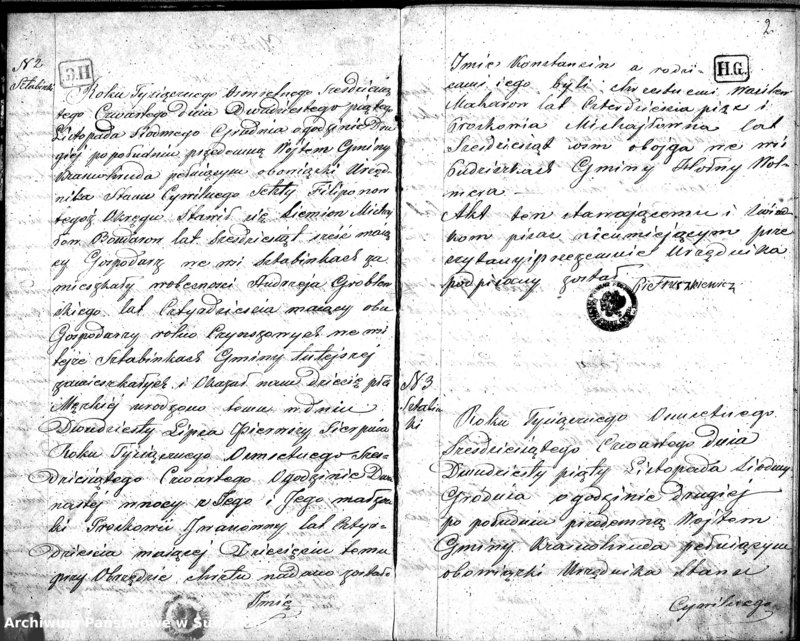 N 2
Sztabinki
Roku Tysiącznego Osmsetnego Sześćdziesią
tego Czwartego dnia Dwudziestego piątego
Listopada Siodmego Grudnia o godzinie Dru
giej po południu przedemną Wojtem Gminy
Krasnowruda pełniącym obowiązki Urzęd-
nika Stanu Cywilnego Sekty Filiponow
tegoż Okręgu Stawił się Siemion
lat Sześdziesiąt sześć mają
cy Gospodarz we wsi Sztabinkach za
mieszkały w obecności Andrzeja
lat Cztyrdziescia mający oba
Gospodarzy rolni Czynszowych we wsi
tejże Sztabinkach Gminy tutejszej
zamieszkałych i Okazał nam dziecię płci
Męzkiej urodzone temu w dniu
Dwudziesty Lipca Pierwszy Sierpnia
Roku Tysiącznego Osmsetnego Sze-
dziesiątego Czwartego O godzinie Dwu
nastej w nocy z Tego i Jego małżon
ki Proskowii Iwanowny lat Cztyr-
dziescia mającej Dziecięciu temu
przy Obrzędzie chrztu nadano zostało
Imie
2
H.G.
Imie Konstancin a rodzi-
cami jego byli chrzestnemi Wasilew
Makarow lat Czterdziescia pięc i
Proskonia Michajłowna lat
Sześdziesiąt osm obojga we wsi
Gminy
Akt ten stawającemu i Świad
kom pisac nieumiejącym prze
czytany i przezemnie Urzędnika
podpisany został Pietruszkiewicz
N 3
Sztabin
ki
Roku Tysiącznego Osmsetnego
Sześdziesiątego Czwartego dnia
Dwudziesty piąty Listopada Siodmy
Grudnia o godzinie drugiej
po południu przedemną Wojtem
Gminy Krasnowruda pełniącym
obowiązki Urzędnika Stanu
Cywilnego
Archiwum Państwowe w Suwałkach